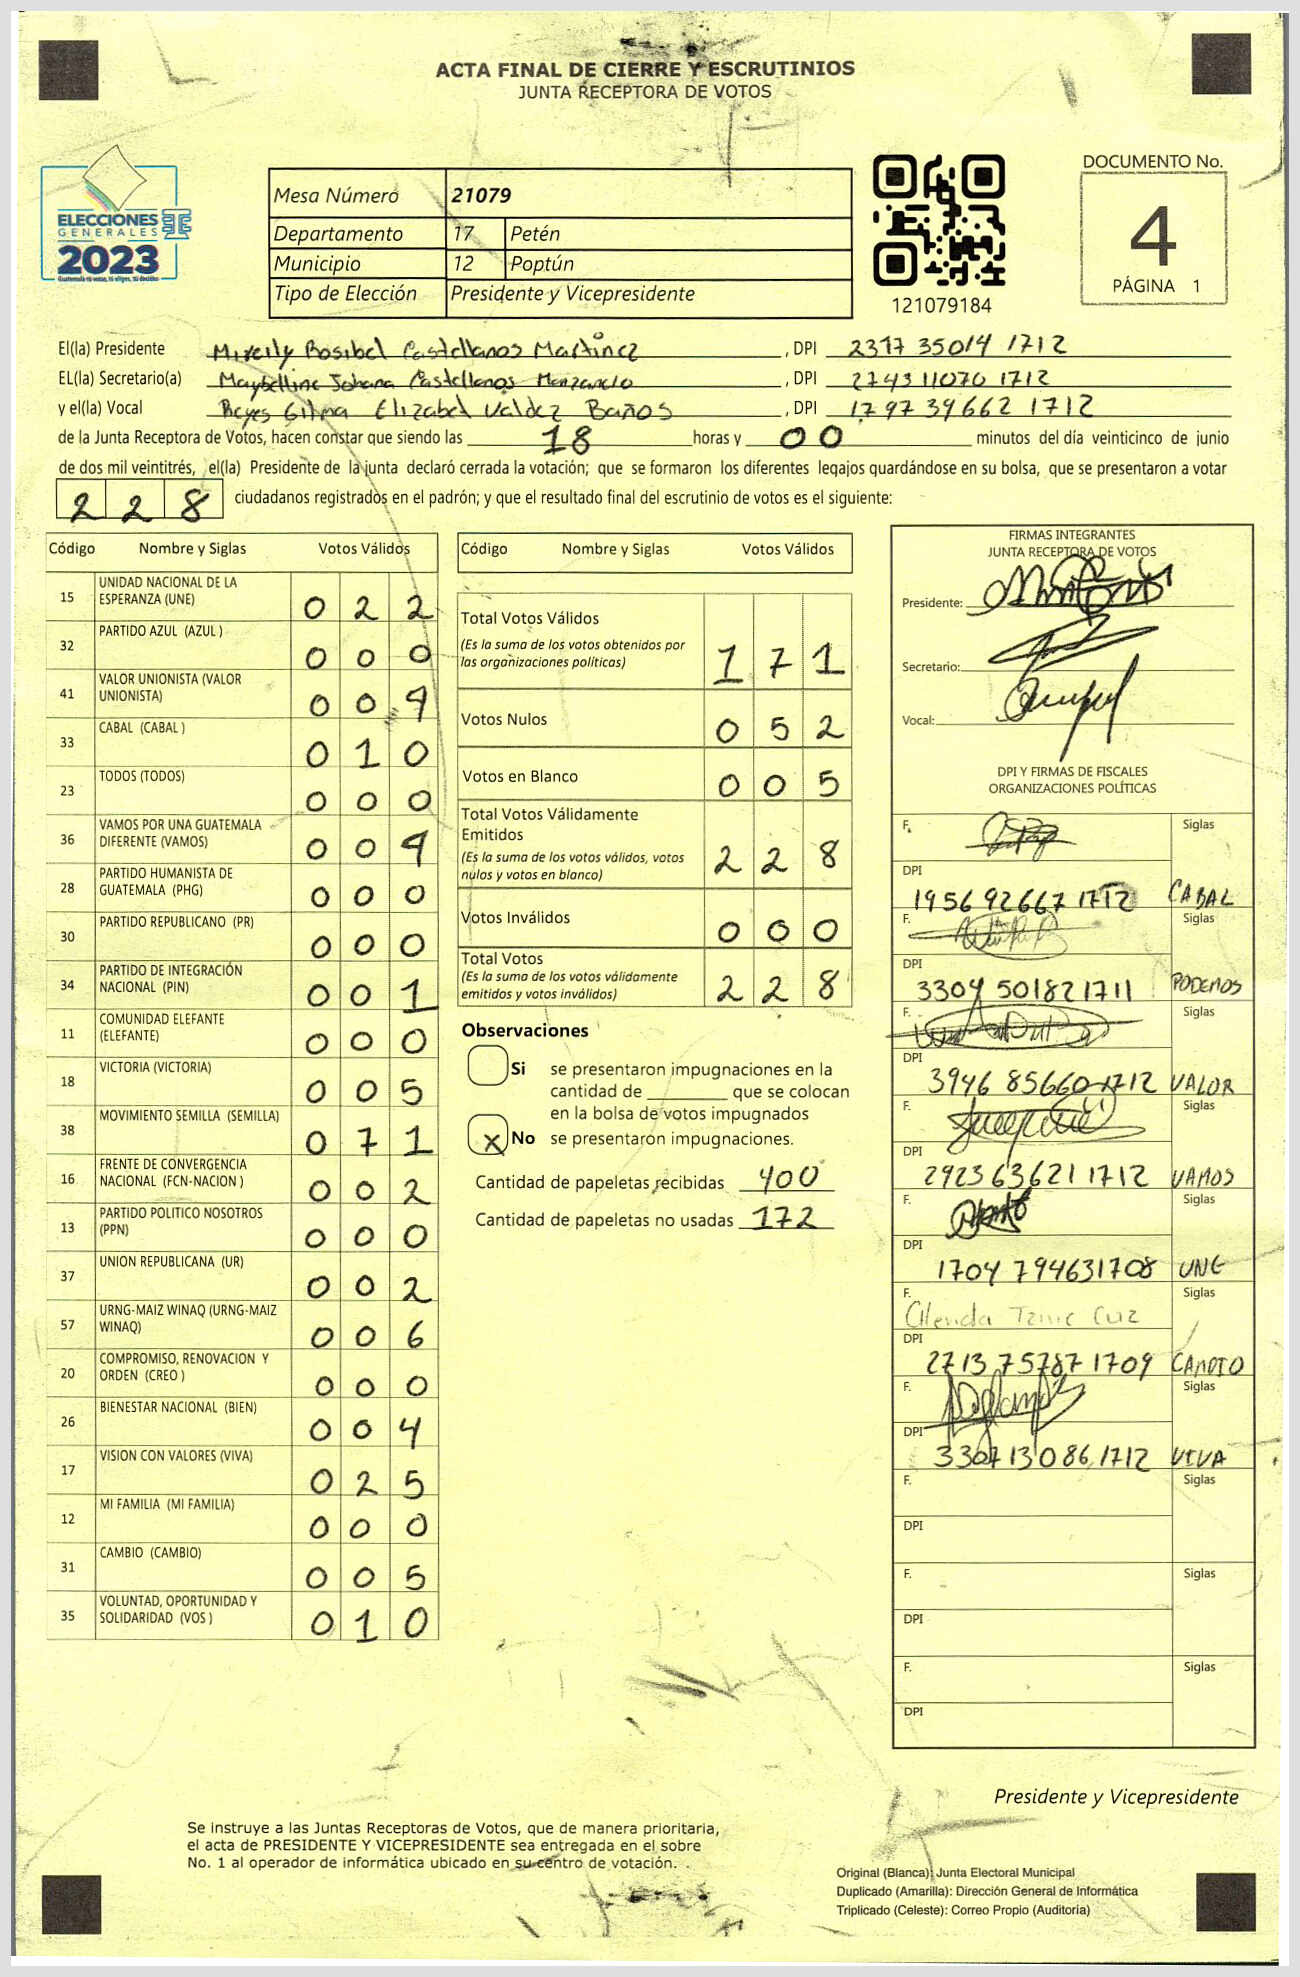 ACTA FINAL DE CIERRE Y ESCRUTINIOS
JUNTA RECEPTORA DE VOTOS
ELECCIONES
GENERALES
2023
Mesa Número 21079
Departamento 17 Petén
Municipio 12 Poptún
Tipo de Elección Presidente y Vicepresidente
121079184
DOCUMENTO No.
4
PÁGINA 1
El(la) Presidente Mireily Rosibel Castellanos Martinez, DPI 2317 35014 1712
EL(la) Secretario(a) Maybelline Johana Castellanos Manzanero, DPI 2743 11070 1712
y el(la) Vocal Reyes Gilma Elizabet Valdez Baños, DPI 1797 39662 1712
de la Junta Receptora de Votos, hacen constar que siendo las 18 horas y 00 minutos del día veinticinco de junio
de dos mil veintitrés, el(la) Presidente de la junta declaró cerrada la votación; que se formaron los diferentes legajos guardándose en su bolsa, que se presentaron a votar
228 ciudadanos registrados en el padrón; y que el resultado final del escrutinio de votos es el siguiente:
Código Nombre y Siglas Votos Válidos
15 UNIDAD NACIONAL DE LA ESPERANZA (UNE) 0 2 2
32 PARTIDO AZUL (AZUL ) 0 0 0
41 VALOR UNIONISTA (VALOR UNIONISTA) 0 0 9
33 CABAL (CABAL ) 0 1 0
23 TODOS (TODOS) 0 0 0
36 VAMOS POR UNA GUATEMALA DIFERENTE (VAMOS) 0 0 9
28 PARTIDO HUMANISTA DE GUATEMALA (PHG) 0 0 0
30 PARTIDO REPUBLICANO (PR) 0 0 0
34 PARTIDO DE INTEGRACIÓN NACIONAL (PIN) 0 0 1
11 COMUNIDAD ELEFANTE (ELEFANTE) 0 0 0
18 VICTORIA (VICTORIA) 0 0 5
38 MOVIMIENTO SEMILLA (SEMILLA) 0 7 1
16 FRENTE DE CONVERGENCIA NACIONAL (FCN-NACION ) 0 0 2
13 PARTIDO POLITICO NOSOTROS (PPN) 0 0 0
37 UNION REPUBLICANA (UR) 0 0 2
57 URNG-MAIZ WINAQ (URNG-MAIZ WINAQ) 0 0 6
20 COMPROMISO, RENOVACION Y ORDEN (CREO ) 0 0 0
26 BIENESTAR NACIONAL (BIEN) 0 0 4
17 VISION CON VALORES (VIVA) 0 2 5
12 MI FAMILIA (MI FAMILIA) 0 0 0
31 CAMBIO (CAMBIO) 0 0 5
35 VOLUNTAD, OPORTUNIDAD Y SOLIDARIDAD (VOS ) 0 1 0
Código Nombre y Siglas Votos Válidos
Total Votos Válidos 1 7 1
(Es la suma de los votos obtenidos por
las organizaciones políticas)
Votos Nulos 0 5 2
Votos en Blanco 0 0 5
Total Votos Válidamente
Emitidos 2 2 8
(Es la suma de los votos válidos, votos
nulos y votos en blanco)
Votos Inválidos 0 0 0
Total Votos 2 2 8
(Es la suma de los votos válidamente
emitidos y votos inválidos)
Observaciones
Si se presentaron impugnaciones en la
cantidad de ________ que se colocan
en la bolsa de votos impugnados
X No se presentaron impugnaciones.
Cantidad de papeletas recibidas 400
Cantidad de papeletas no usadas 172
FIRMAS INTEGRANTES
JUNTA RECEPTORA DE VOTOS
Presidente:
Secretario:
Vocal:
DPI Y FIRMAS DE FISCALES
ORGANIZACIONES POLÍTICAS
F. Siglas
DPI 1956 92667 1712 CABAL
F. Siglas
DPI 3304 50182 1711 PODEMOS
F. Siglas
DPI 3946 85660 1712 VALOR
F. Siglas
DPI 2923 63621 1712 VAMOS
F. Siglas
DPI 1704 79463 1708 UNE
F. Siglas
DPI 2713 75787 1709
F. Siglas
DPI 3307 13086 1712 VIVA
F. Siglas
DPI
F. Siglas
DPI
F. Siglas
DPI
Presidente y Vicepresidente
Se instruye a las Juntas Receptoras de Votos, que de manera prioritaria,
el acta de PRESIDENTE Y VICEPRESIDENTE sea entregada en el sobre
No. 1 al operador de informática ubicado en su centro de votación.
Original (Blanca): Junta Electoral Municipal
Duplicado (Amarilla): Dirección General de Informática
Triplicado (Celeste): Correo Propio (Auditoría)